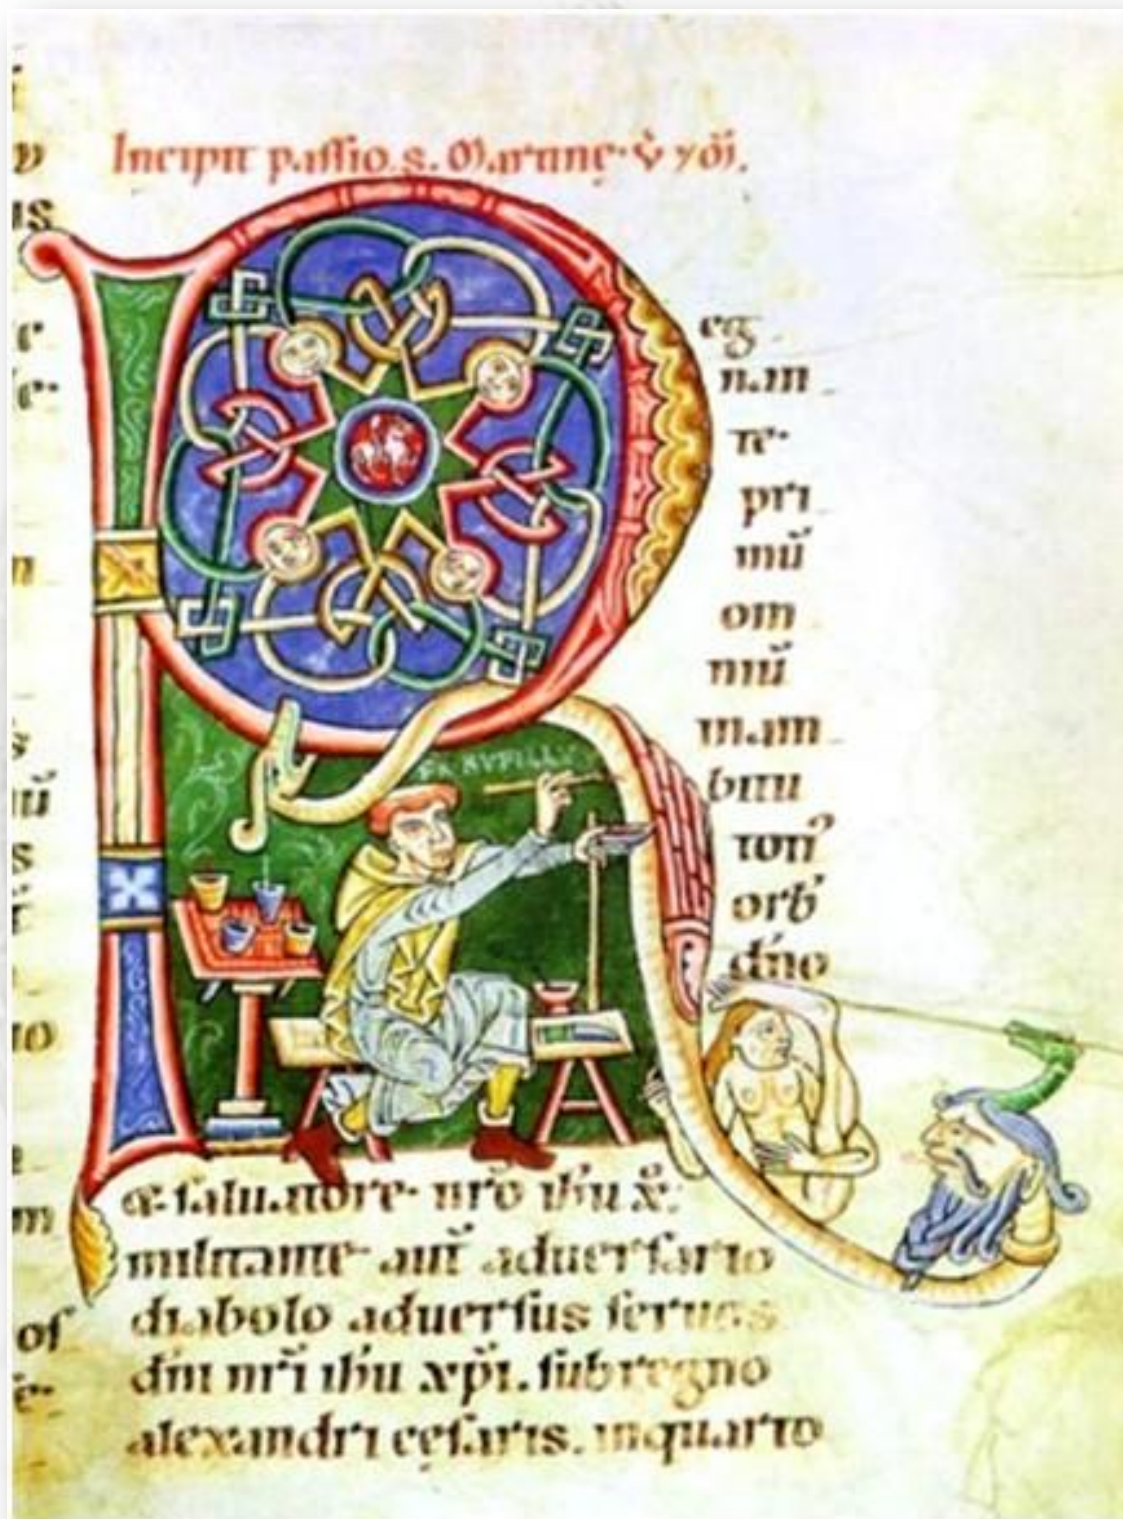 Incipit passio. s. Martinę. v̇ yđi.
FR RVFILLVS
R
eg
nan
te.
pri
mū
om
niū
mam
bitu
toti᾽
orb᾽
dn̄o
& saluatore. nr̄o ih̄u x̄.
militante. aut̄ aduersario
diabolo aduersus seruos
dn̄i nr̄i ih̄u xp̄i. sub regno
alexandri cęsaris. inquarto